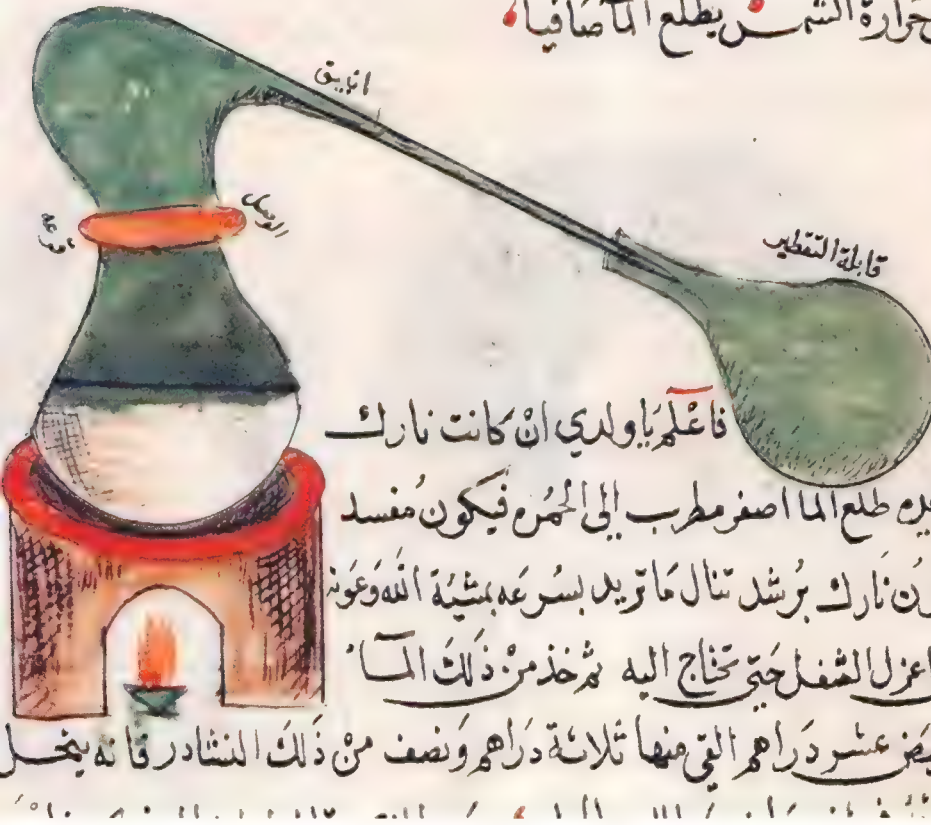 حرارة الشمس يطلع الما صافيا
انبيق
الوصل
قابلة التقطير
فاعْلَم يَا ولدي انْ كانت نارك
طلع الما اصفر مطرب الى الحُمره فيكون مُفسد
نَارك برُشد تنال مَا تريد بسُرعَه بمشيَة الله وَعَونه
اعزل الثفل حَتى تحتاج اليه ثم خذ منْ ذَلكَ المآ
عشر دَراهم القى منها ثلاثة دَراهم وَنصف منْ ذَلكَ النشادر فانه ينحل